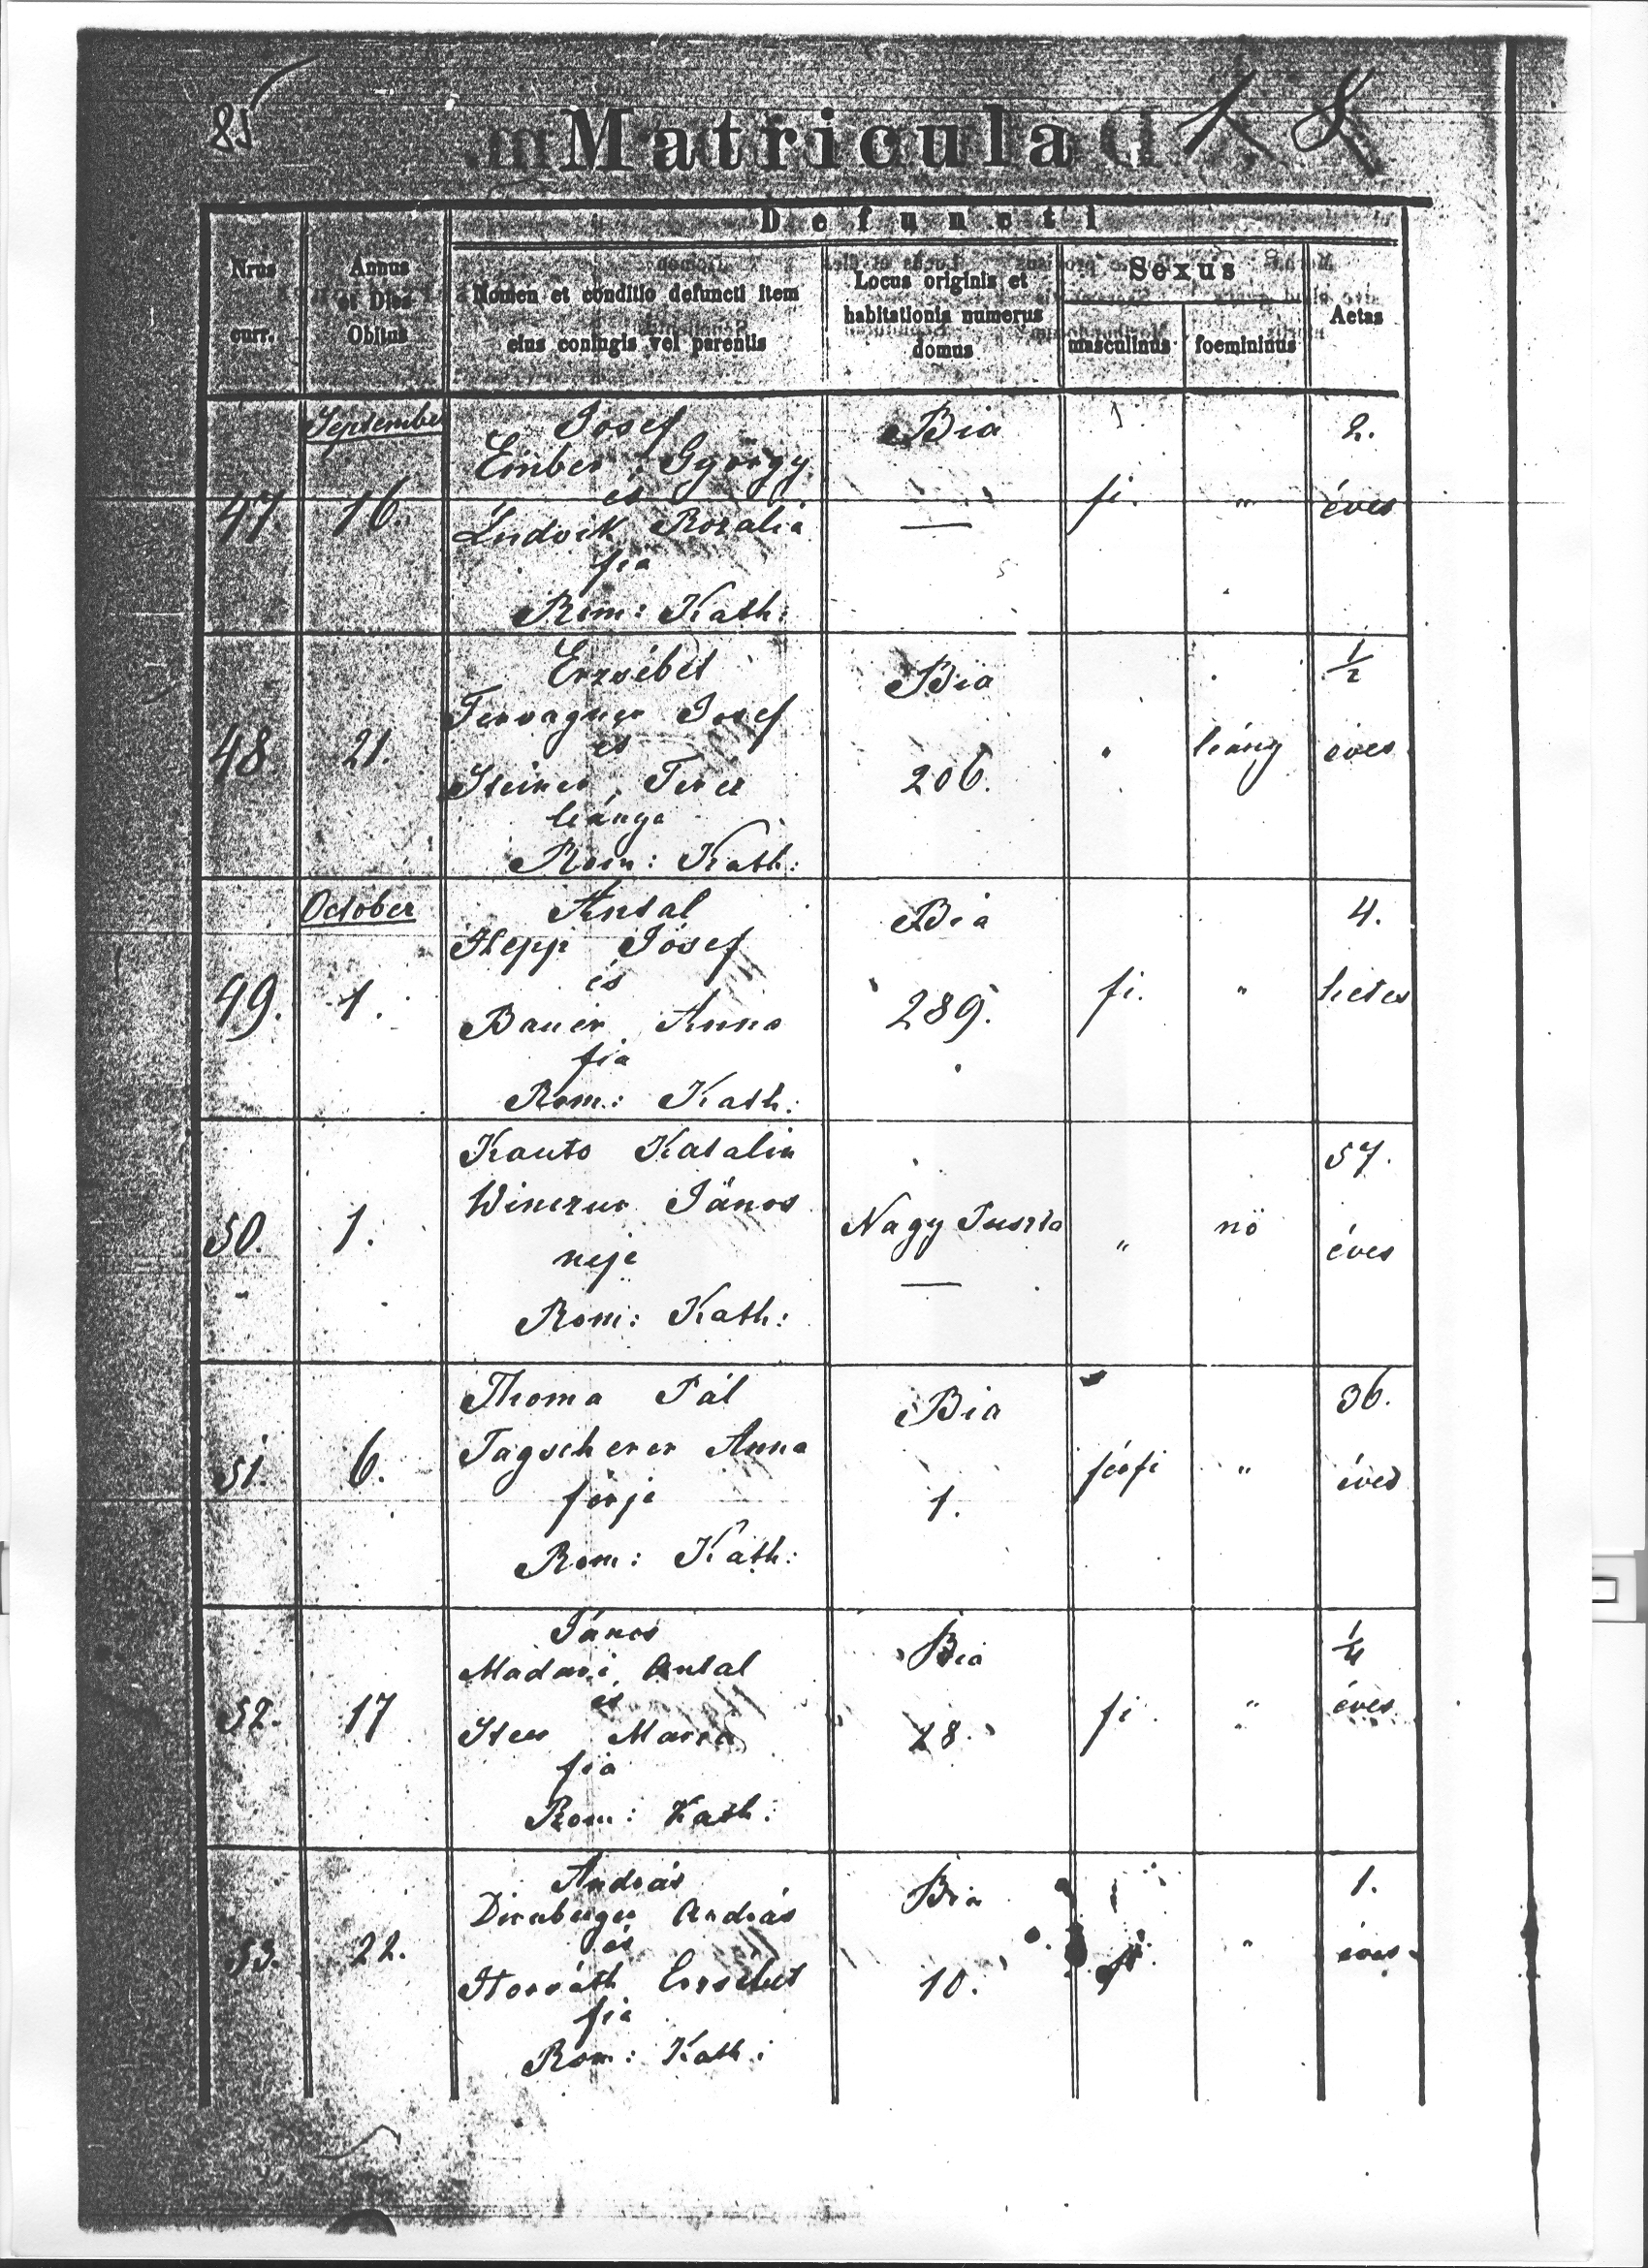 85
Matricula
18
Defuncti
Nrus curr.
Annus et Dies Obitus
Nomen et conditio defuncti item eius coniugis vel parentis
Locus originis et habitationis numerus domus
Sexus
masculinus
foemininus
Aetas
September
47. 16.
Josef
Ember György
és
Ludvik Rozalia
fia
Rom: Kath:
Bia
—
fi. "
2.
éves
48 21.
Erzsébet
Tervagner Josef
és
Steiner Terez
leánya
Rom: Kath:
Bia
206.
" leány
1/2
éves
October
49. 1.
Antal
Hepp Jósef
és
Bauer Anna
fia
Rom: Kath:
Bia
289.
fi. "
4.
hetes
50. 1.
Kauto Katalin
Winczur János
neje
Rom: Kath:
Nagy Puszta
—
" nö
57.
éves
51. 6.
Thoma Pál
Tagscherer Anna
férje
Rom: Kath:
Bia
1.
férfi "
36.
éves
52. 17
János
Madari Antal
és
Maria
fia
Rom: Kath:
Bia
28.
fi. "
1/4
éves
53. 22.
András
Dirnberger András
és
Horváth Erzsébet
fia
Rom: Kath:
Bia
10.
fi. "
1.
éves